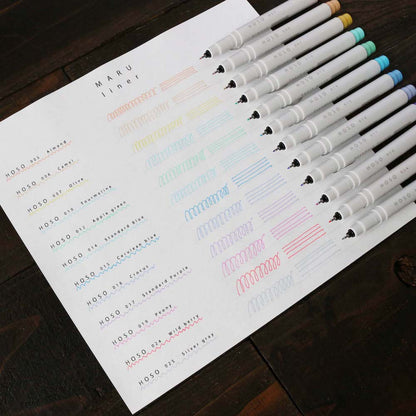 MARU
liner
HOSO 005 Almond
HOSO 006 Camel
HOSO 007 Olive
HOSO 010 Tourmaline
HOSO 011 Apple green
HOSO 014 Standard Blue
HOSO 015 Cerulean blue
HOSO 016 Crocus
HOSO 017 Standard Purple
HOSO 019 Peony
HOSO 024 Wild berry
HOSO 025 Silver gray